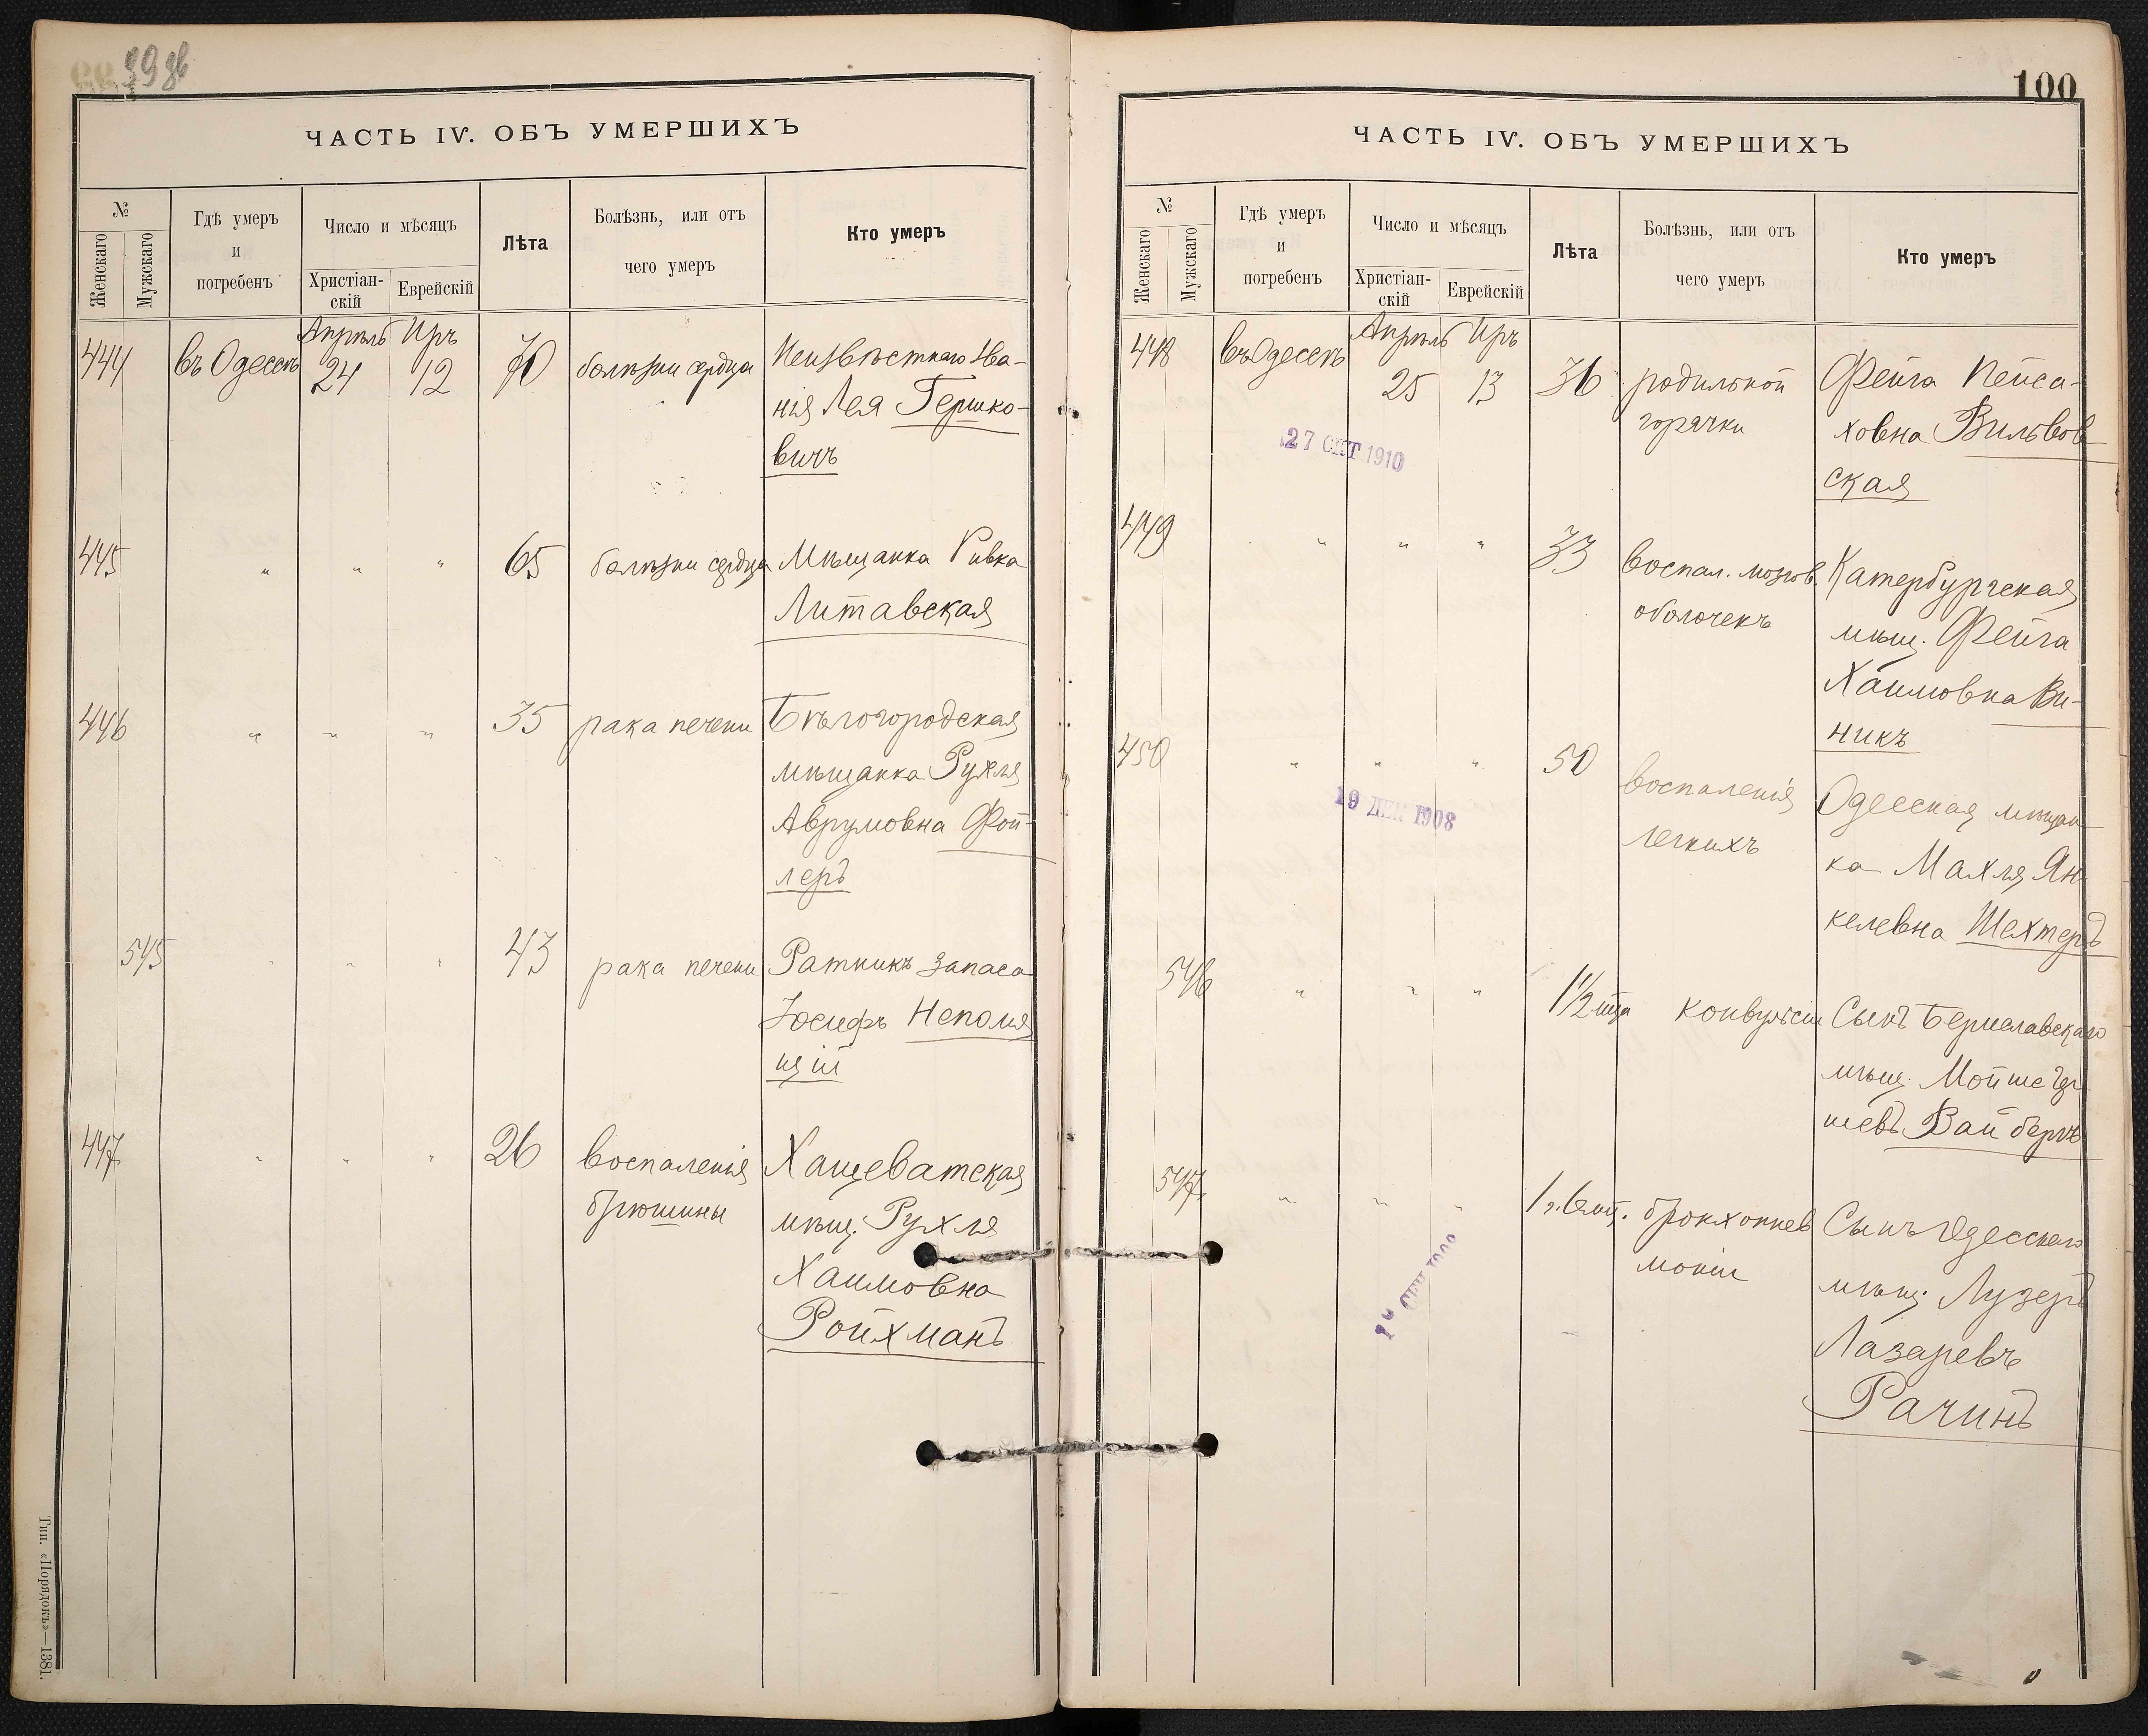 99 об
ЧАСТЬ IV. ОБЪ УМЕРШИХЪ
№
Женскаго
Мужскаго
Гдѣ умеръ
и
погребенъ
Число и мѣсяцъ
Христіан-
скій
Еврейскій
Лѣта
Болѣзнь, или отъ
чего умеръ
Кто умеръ
Апрѣль Иръ
444 въ Одессѣ 24 12 70 болѣзни сердца Неизвѣстнаго зва-
нія Лея Гершко-
вичъ
445 " " " 65 болѣзни сердца Мѣщанка Ривка
Литавская
446 " " " 35 рака печени Бѣлогородская
мѣщанка Рухля
Аврумовна Фой-
леръ
545 " " " 43 рака печени Ратникъ запаса
Іосифъ Неполя
цкій
447 " " " 26 воспаленія Хащеватская
брюшины мѣщ. Рухля
Хаимовна
Ройхманъ
Тип. «Порядокъ»—1381.
100
ЧАСТЬ IV. ОБЪ УМЕРШИХЪ
№
Женскаго
Мужскаго
Гдѣ умеръ
и
погребенъ
Число и мѣсяцъ
Христіан-
скій
Еврейскій
Лѣта
Болѣзнь, или отъ
чего умеръ
Кто умеръ
Апрѣль Иръ
448 въ Одессѣ 25 13 36 родильной Фейга Пейса-
горячки ховна Вильвов
ская
27 ОКТ 1910
449 " " " 33 воспал. мозгов. Катербургская
оболочекъ мѣщ. Фейга
Хаимовна Ви-
никъ
450 " " " 50 воспаленія Одесская мѣщан
легкихъ ка Махля Ян
келевна Шехтеръ
19 ДЕК 1908
546 " " " 1 1/2 мца конвульсіи Сынъ Бериславскаго
мѣщ. Мойше
шевъ Вайбергъ
547 " " " 1 г. 6 мц. бронхопнев Сынъ Одесскаго
моніи мѣщ. Лузеръ
Лазаревъ
Рачинъ